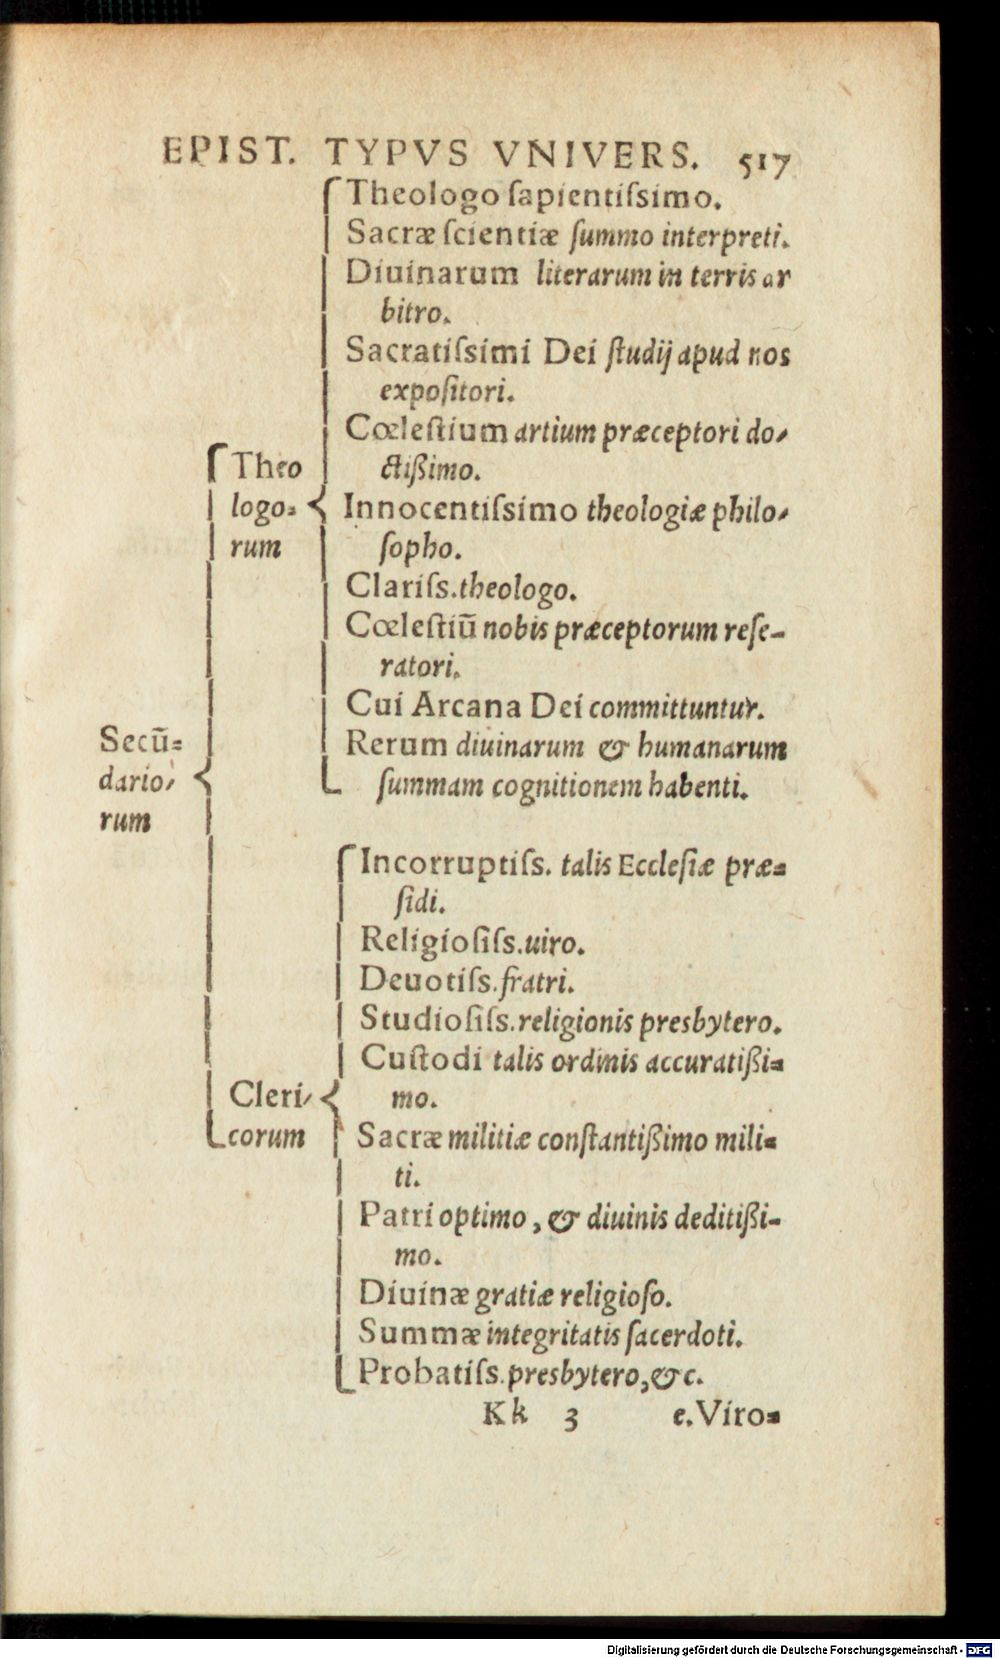 EPIST. TYPVS VNIVERS. 517
Theologo ſapientiſsimo.
Sacræ ſcientiæ ſummo interpreti.
Diuinarum literarum in terris ar
bitro.
Sacratiſsimi Dei ſtudij apud nos
expoſitori.
Cœleſtium artium præceptori do-
ctißimo.
Innocentiſsimo theologiæ philo-
ſopho.
Clariſs. theologo.
Cœleſtiũ nobis præceptorum reſe-
ratori.
Cui Arcana Dei committuntur.
Rerum diuinarum & humanarum
ſummam cognitionem habenti.
Theo
logo-
rum
Secũ-
dario-
rum
Incorruptiſs. talis Eccleſiæ præ-
ſidi.
Religioſiſs. uiro.
Deuotiſs. fratri.
Studioſiſs. religionis presbytero.
Cuſtodi talis ordinis accuratißi-
mo.
Sacræ militiæ conſtantißimo mili-
ti.
Patri optimo, & diuinis deditißi-
mo.
Diuinæ gratiæ religioſo.
Summæ integritatis ſacerdoti.
Probatiſs. presbytero, &c.
Cleri-
corum
Kk 3 e. Viro-
Digitalisierung gefördert durch die Deutsche Forschungsgemeinschaft - DFG